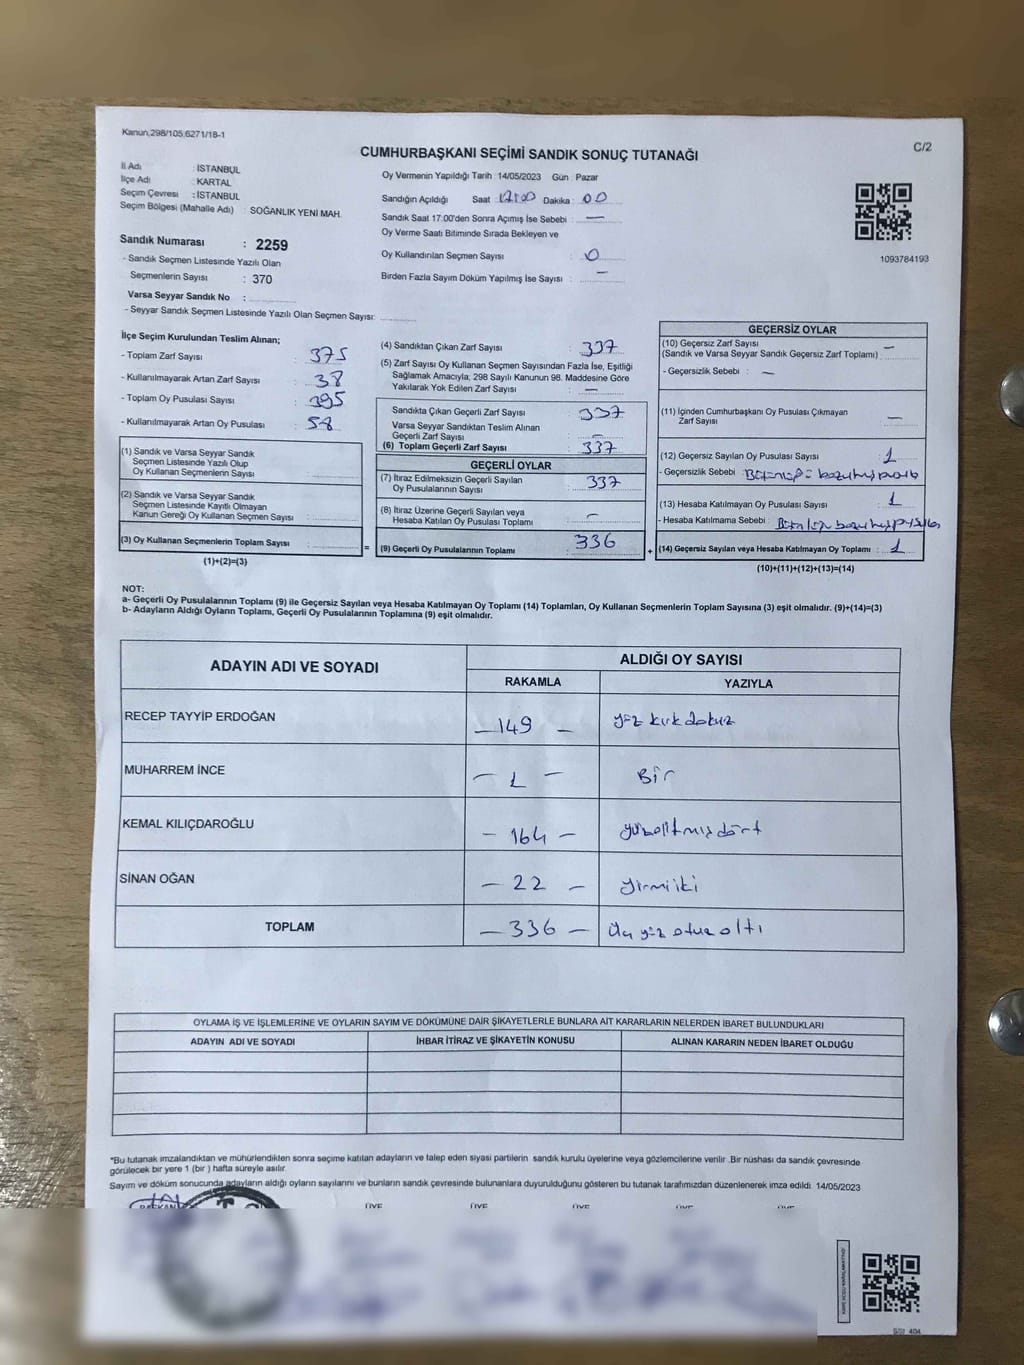 Kanun;298/105;6271/18-1
C/2
CUMHURBAŞKANI SEÇİMİ SANDIK SONUÇ TUTANAĞI
İl Adı : İSTANBUL
İlçe Adı : KARTAL
Seçim Çevresi : İSTANBUL
Seçim Bölgesi (Mahalle Adı) : SOĞANLIK YENİ MAH.
Sandık Numarası : 2259
- Sandık Seçmen Listesinde Yazılı Olan
Seçmenlerin Sayısı : 370
Varsa Seyyar Sandık No :
- Seyyar Sandık Seçmen Listesinde Yazılı Olan Seçmen Sayısı:
Oy Vermenin Yapıldığı Tarih : 14/05/2023 Gün : Pazar
Sandığın Açıldığı Saat : 17:00 Dakika : 00
Sandık Saat 17:00'den Sonra Açımış İse Sebebi : —
Oy Verme Saati Bitiminde Sırada Bekleyen ve
Oy Kullandırılan Seçmen Sayısı : 0
Birden Fazla Sayım Döküm Yapılmış İse Sayısı : —
1093784193
İlçe Seçim Kurulundan Teslim Alınan;
- Toplam Zarf Sayısı : 375
- Kullanılmayarak Artan Zarf Sayısı : 38
- Toplam Oy Pusulası Sayısı : 395
- Kullanılmayarak Artan Oy Pusulası : 58
(1) Sandık ve Varsa Seyyar Sandık
Seçmen Listesinde Yazılı Olup
Oy Kullanan Seçmenlerin Sayısı :
(2) Sandık ve Varsa Seyyar Sandık
Seçmen Listesinde Kayıtlı Olmayan
Kanun Gereği Oy Kullanan Seçmen Sayısı :
(3) Oy Kullanan Seçmenlerin Toplam Sayısı :
(1)+(2)=(3)
(4) Sandıktan Çıkan Zarf Sayısı : 337
(5) Zarf Sayısı Oy Kullanan Seçmen Sayısından Fazla İse, Eşitliği
Sağlamak Amacıyla; 298 Sayılı Kanunun 98. Maddesine Göre
Yakılarak Yok Edilen Zarf Sayısı : —
Sandıkta Çıkan Geçerli Zarf Sayısı : 337
Varsa Seyyar Sandıktan Teslim Alınan
Geçerli Zarf Sayısı : —
(6) Toplam Geçerli Zarf Sayısı : 337
GEÇERLİ OYLAR
(7) İtiraz Edilmeksizin Geçerli Sayılan
Oy Pusulalarının Sayısı : 337
(8) İtiraz Üzerine Geçerli Sayılan veya
Hesaba Katılan Oy Pusulası Toplamı : —
= (9) Geçerli Oy Pusulalarının Toplamı : 336 +
GEÇERSİZ OYLAR
(10) Geçersiz Zarf Sayısı —
(Sandık ve Varsa Seyyar Sandık Geçersiz Zarf Toplamı) :
- Geçersizlik Sebebi : —
(11) İçinden Cumhurbaşkanı Oy Pusulası Çıkmayan
Zarf Sayısı : —
(12) Geçersiz Sayılan Oy Pusulası Sayısı : 1
- Geçersizlik Sebebi
(13) Hesaba Katılmayan Oy Pusulası Sayısı : 1
- Hesaba Katılmama Sebebi :
(14) Geçersiz Sayılan veya Hesaba Katılmayan Oy Toplamı : 1
(10)+(11)+(12)+(13)=(14)
NOT:
a- Geçerli Oy Pusulalarının Toplamı (9) ile Geçersiz Sayılan veya Hesaba Katılmayan Oy Toplamı (14) Toplamları, Oy Kullanan Seçmenlerin Toplam Sayısına (3) eşit olmalıdır. (9)+(14)=(3)
b- Adayların Aldığı Oyların Toplamı, Geçerli Oy Pusulalarının Toplamına (9) eşit olmalıdır.
ADAYIN ADI VE SOYADI
ALDIĞI OY SAYISI
RAKAMLA YAZIYLA
RECEP TAYYİP ERDOĞAN — 149 — yüz kırk dokuz
MUHARREM İNCE — 1 — Bir
KEMAL KILIÇDAROĞLU — 164 — yüzaltmışdört
SİNAN OĞAN — 22 — yirmiiki
TOPLAM — 336 — Üç yüz otuz altı
OYLAMA İŞ VE İŞLEMLERİNE VE OYLARIN SAYIM VE DÖKÜMÜNE DAİR ŞİKAYETLERLE BUNLARA AİT KARARLARIN NELERDEN İBARET BULUNDUKLARI
ADAYIN ADI VE SOYADI İHBAR İTİRAZ VE ŞİKAYETİN KONUSU ALINAN KARARIN NEDEN İBARET OLDUĞU
*Bu tutanak imzalandıktan ve mühürlendikten sonra seçime katılan adayların ve talep eden siyasi partilerin sandık kurulu üyelerine veya gözlemcilerine verilir .Bir nüshası da sandık çevresinde
görülecek bir yere 1 (bir ) hafta süreyle asılır.
Sayım ve döküm sonucunda adayların aldığı oyların sayılarını ve bunların sandık çevresinde bulunanlara duyurulduğunu gösteren bu tutanak tarafımızdan düzenlenerek imza edildi. 14/05/2023
BAŞKAN ÜYE ÜYE ÜYE ÜYE ÜYE